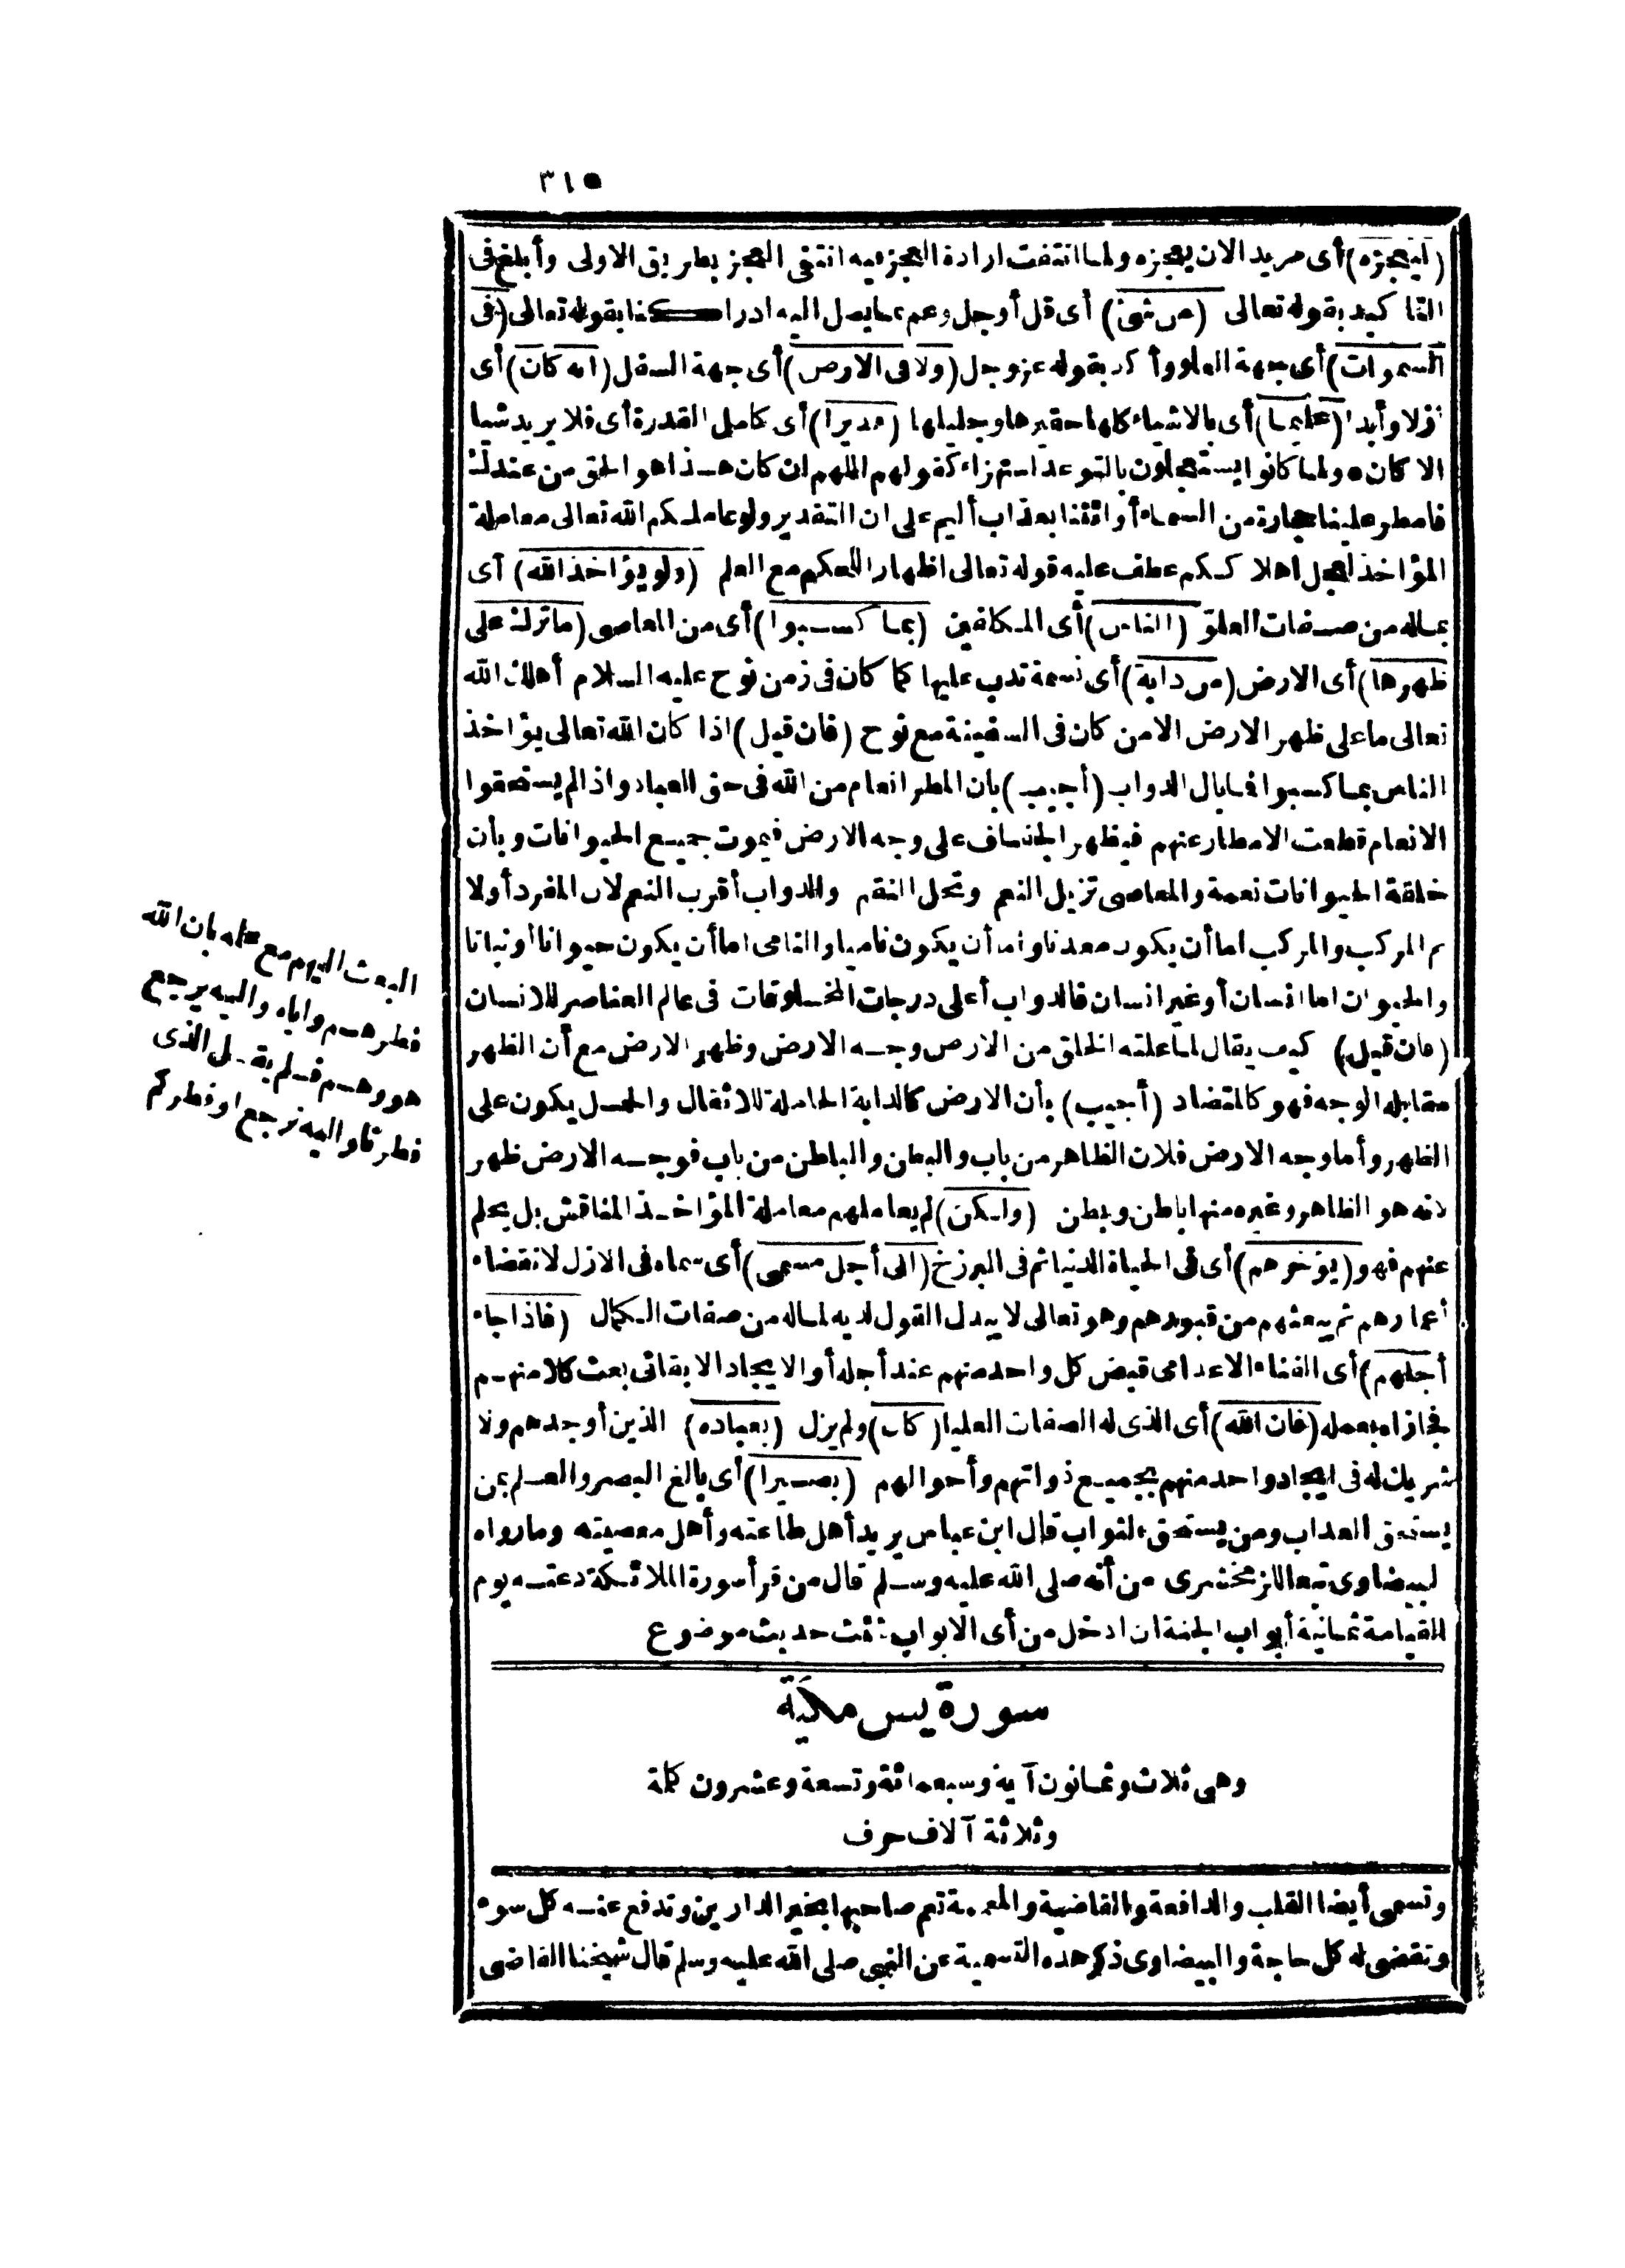 ٣١٥
(ليعجزه) أى مريد الان يعجزه ولما انتفت ارادة العجز فيه انتفى العجز بطريق الاولى وأبلغ فى
التاكيد بقوله تعالى (من شئ) أى قل أو جل وعم بما يصل اليه ادراكنا بقوله تعالى (فى
السموات) أى جهة العلو وأكد بقوله عز وجل (ولا فى الارض) أى جهة السفل (انه كان) أى
أزلا وأبدا (عليما) أى بالاشياء كلها حقيرها وجليلها (قديرا) أى كامل القدرة أى فلا يريد شيا
الا كان ه ولما كانوا يستعجلون بالتوعد استهزاء كقولهم اللهم ان كان هذا هو الحق من عندك
فامطر علينا حجارة من السماء أو ائتنا بعذاب أليم على ان التقدير ولو عاملكم الله تعالى معاملة
المؤاخذ لعجل اهلاككم عطف عليه قوله تعالى اظهارا للحكم مع العلم (ولو يؤاخذ الله) أى
بماله من صفات العلو (الناس) أى المكلفين (بما كسبوا) أى من المعاصى (ما ترك على
ظهرها) أى الارض (من دابة) أى نسمة تدب عليها كما كان فى زمن نوح عليه السلام أهلك الله
تعالى ما على ظهر الارض الا من كان فى السفينة مع نوح (فان قيل) اذا كان الله تعالى يؤاخذ
الناس بما كسبوا فما بال الدواب (أجيب) بان المطر انعام من الله فى حق العباد واذا لم يستحقوا
الانعام قطعت الامطار عنهم فيظهر الجفاف على وجه الارض فيموت جميع الحيوانات وبأن
خلقة الحيوانات نعمة والمعاصى تزيل النعم وتحل النقم والدواب أقرب النعم لان المفرد أولا
ثم المركب والمركب اما أن يكون معدنا واما أن يكون ناميا والنامى اما أن يكون حيوانا أو نباتا
والحيوان اما انسان أو غير انسان فالدواب أعلى درجات المخلوقات فى عالم العناصر للانسان
(فان قيل) كيف يقال لما علته الخلق من الارض وجه الارض وظهر الارض مع أن الظهر
مقابله الوجه فهو كالمتضاد (أجيب) بأن الارض كالدابة الحاملة للاثقال والحمل يكون على
الظهر وأما وجه الارض فلان الظاهر من باب والبطن والباطن من باب فوجه الارض ظهر
لانه هو الظاهر وغيره منها باطن وبطن (ولكن) لم يعاملهم معاملة المؤاخذ المناقش بل يحلم
عنهم فهو (يؤخرهم) أى فى الحياة الدنيا ثم فى البرزخ (الى أجل مسمى) أى سماه فى الازل لانقضاء
أعمارهم ثم يبعثهم من قبورهم وهو تعالى لا يبدل القول لديه لماله من صفات الكمال (فاذا جاء
أجلهم) أى الفناء الاعدامى قبض كل واحد منهم عند أجله أو الايجاد الابقائى بعث كلا منهم
فجازاه بعمله (فان الله) أى الذى له الصفات العليا (كان) ولم يزل (بعباده) الذين أوجدهم ولا
شريك له فى ايجاد واحد منهم بجميع ذواتهم وأحوالهم (بصيرا) أى بالغ البصر والعلم بمن
يستحق العذاب ومن يستحق الثواب قال ابن عباس يريد أهل طاعته وأهل معصيته وما رواه
البيضاوى تبعا للزمخشرى من أنه صلى الله عليه وسلم قال من قرأ سورة الملائكة دعته يوم
القيامة ثمانية أبواب الجنة ان ادخل من أى الابواب شئت حديث موضوع
سورة يس مكية
وهى ثلاث وثمانون آية وسبعمائة وتسعة وعشرون كلمة
وثلاثة آلاف حرف
وتسمى أيضا القلب والدافعة والقاضية والمعمة تعم صاحبها بخير الدارين وتدفع عنه كل سوء
وتقضى له كل حاجة والبيضاوى ذكر هذه التسمية عن النبى صلى الله عليه وسلم قال شيخنا القاضى
البعث اليهم مع علمه بان الله
فطرهم واياه واليه يرجع
هو وهم فلم يقل الذى
فطرنا واليه نرجع او فطركم